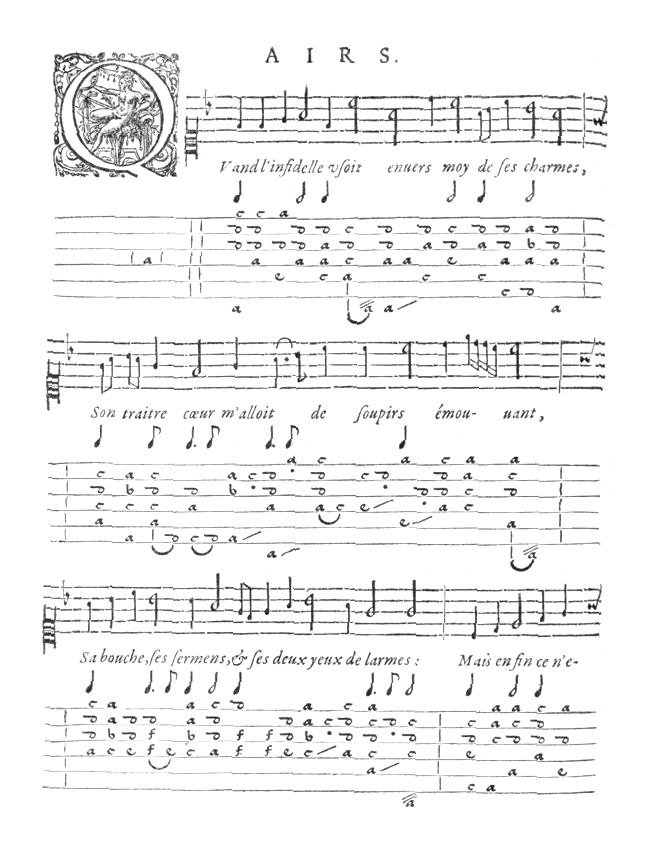 AIRS.
QVand l'infidelle vsoit enuers moy de ses charmes,
Son traitre cœur m'alloit de soupirs émou- uant,
Sa bouche, ses sermens, & ses deux yeux de larmes :
Mais enfin ce n'e-